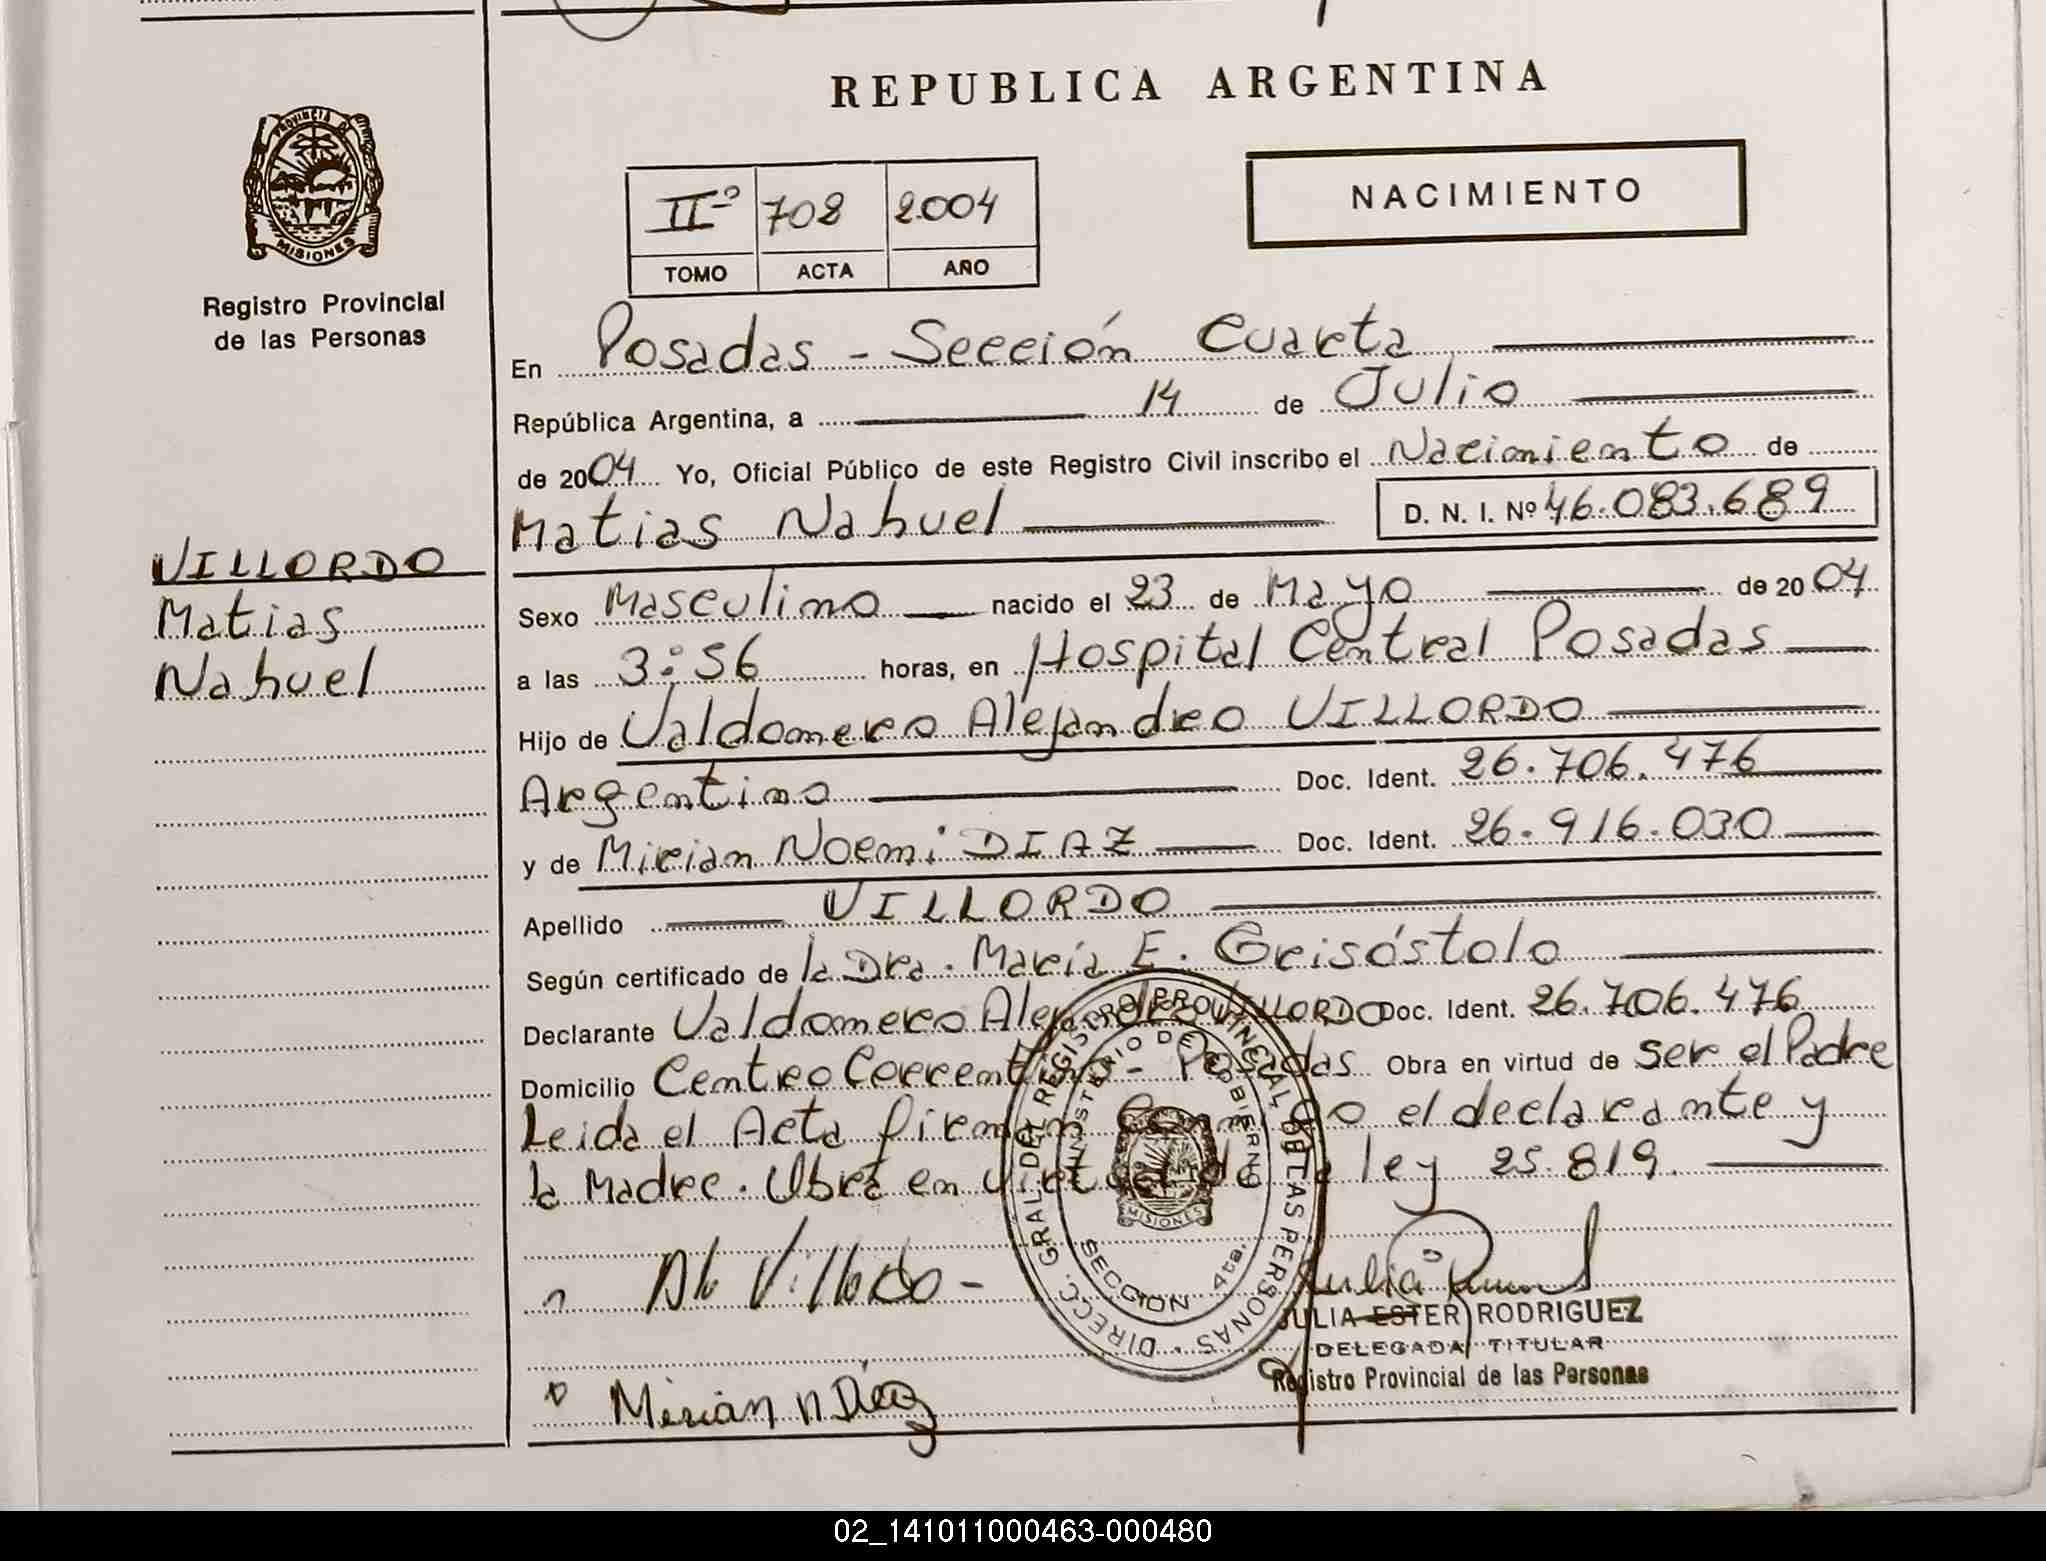 REPUBLICA ARGENTINA
PROVINCIA DE
MISIONES
Registro Provincial
de las Personas
NACIMIENTO
IIº 708 2004
TOMO ACTA AÑO
En Posadas - Sección Cuarta
República Argentina, a 14 de Julio
de 2004 Yo, Oficial Público de este Registro Civil inscribo el Nacimiento de
Matias Nahuel D. N. I. Nº 46.083.689
VILLORDO
Matias
Nahuel
Sexo Masculino nacido el 23 de Mayo de 2004
a las 3:56 horas, en Hospital Central Posadas
Hijo de Valdomero Alejandro VILLORDO
Argentino Doc. Ident. 26.706.476
y de Mirian Noemi DIAZ Doc. Ident. 26.916.030
Apellido VILLORDO
Según certificado de la Dra. María E. Grisóstolo
Declarante Valdomero Alejandro VILLORDO Doc. Ident. 26.706.476
Domicilio Centro Correntino - Posadas Obra en virtud de ser el Padre
Leida el Acta firman Conmigo el declarante y
la Madre. Obra en virtud de la ley 25.819.
DIRECC. GRAL. DEL REGISTRO PROVINCIAL DE LAS PERSONAS
MINISTERIO DE GOBIERNO
MISIONES
SECCION 4ta.
Villordo -
JULIA ESTER RODRIGUEZ
DELEGADA TITULAR
Registro Provincial de las Personas
Mirian n Diaz
02_141011000463-000480